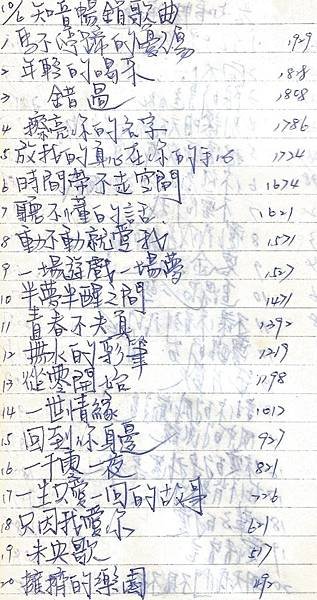 10/2 知音暢銷歌曲
1 馬不停蹄的憂傷 1909
2 年輕的喝采 1828
3 錯過 1808
4 擦亮你的名字 1786
5 放我的真心在你的手心 1724
6 時間帶不走空間 1674
7 聽不懂的話 1621
8 動不動就說愛我 1571
9 一場遊戲一場夢 1527
10 半夢半醒之間 1471
11 青春不失真 1392
12 拱水的彩筆 1219
13 從零開始 1198
14 一世情緣 1012
15 回到你身邊 927
16 一千零一夜 821
17 一生只愛一回的故事 726
18 只因我愛你 621
19 未央歌 517
20 擁擠的樂園 492